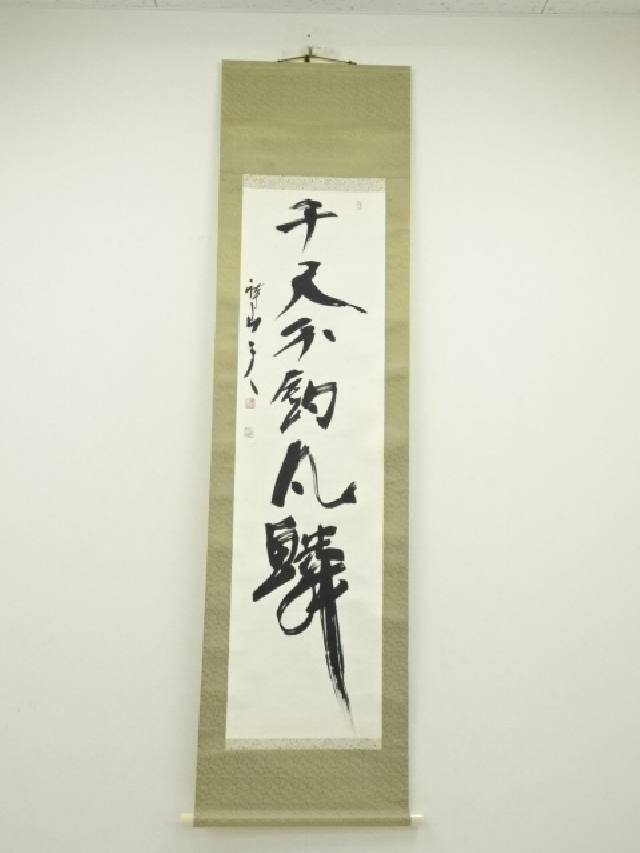 千尺不釣凡鱗